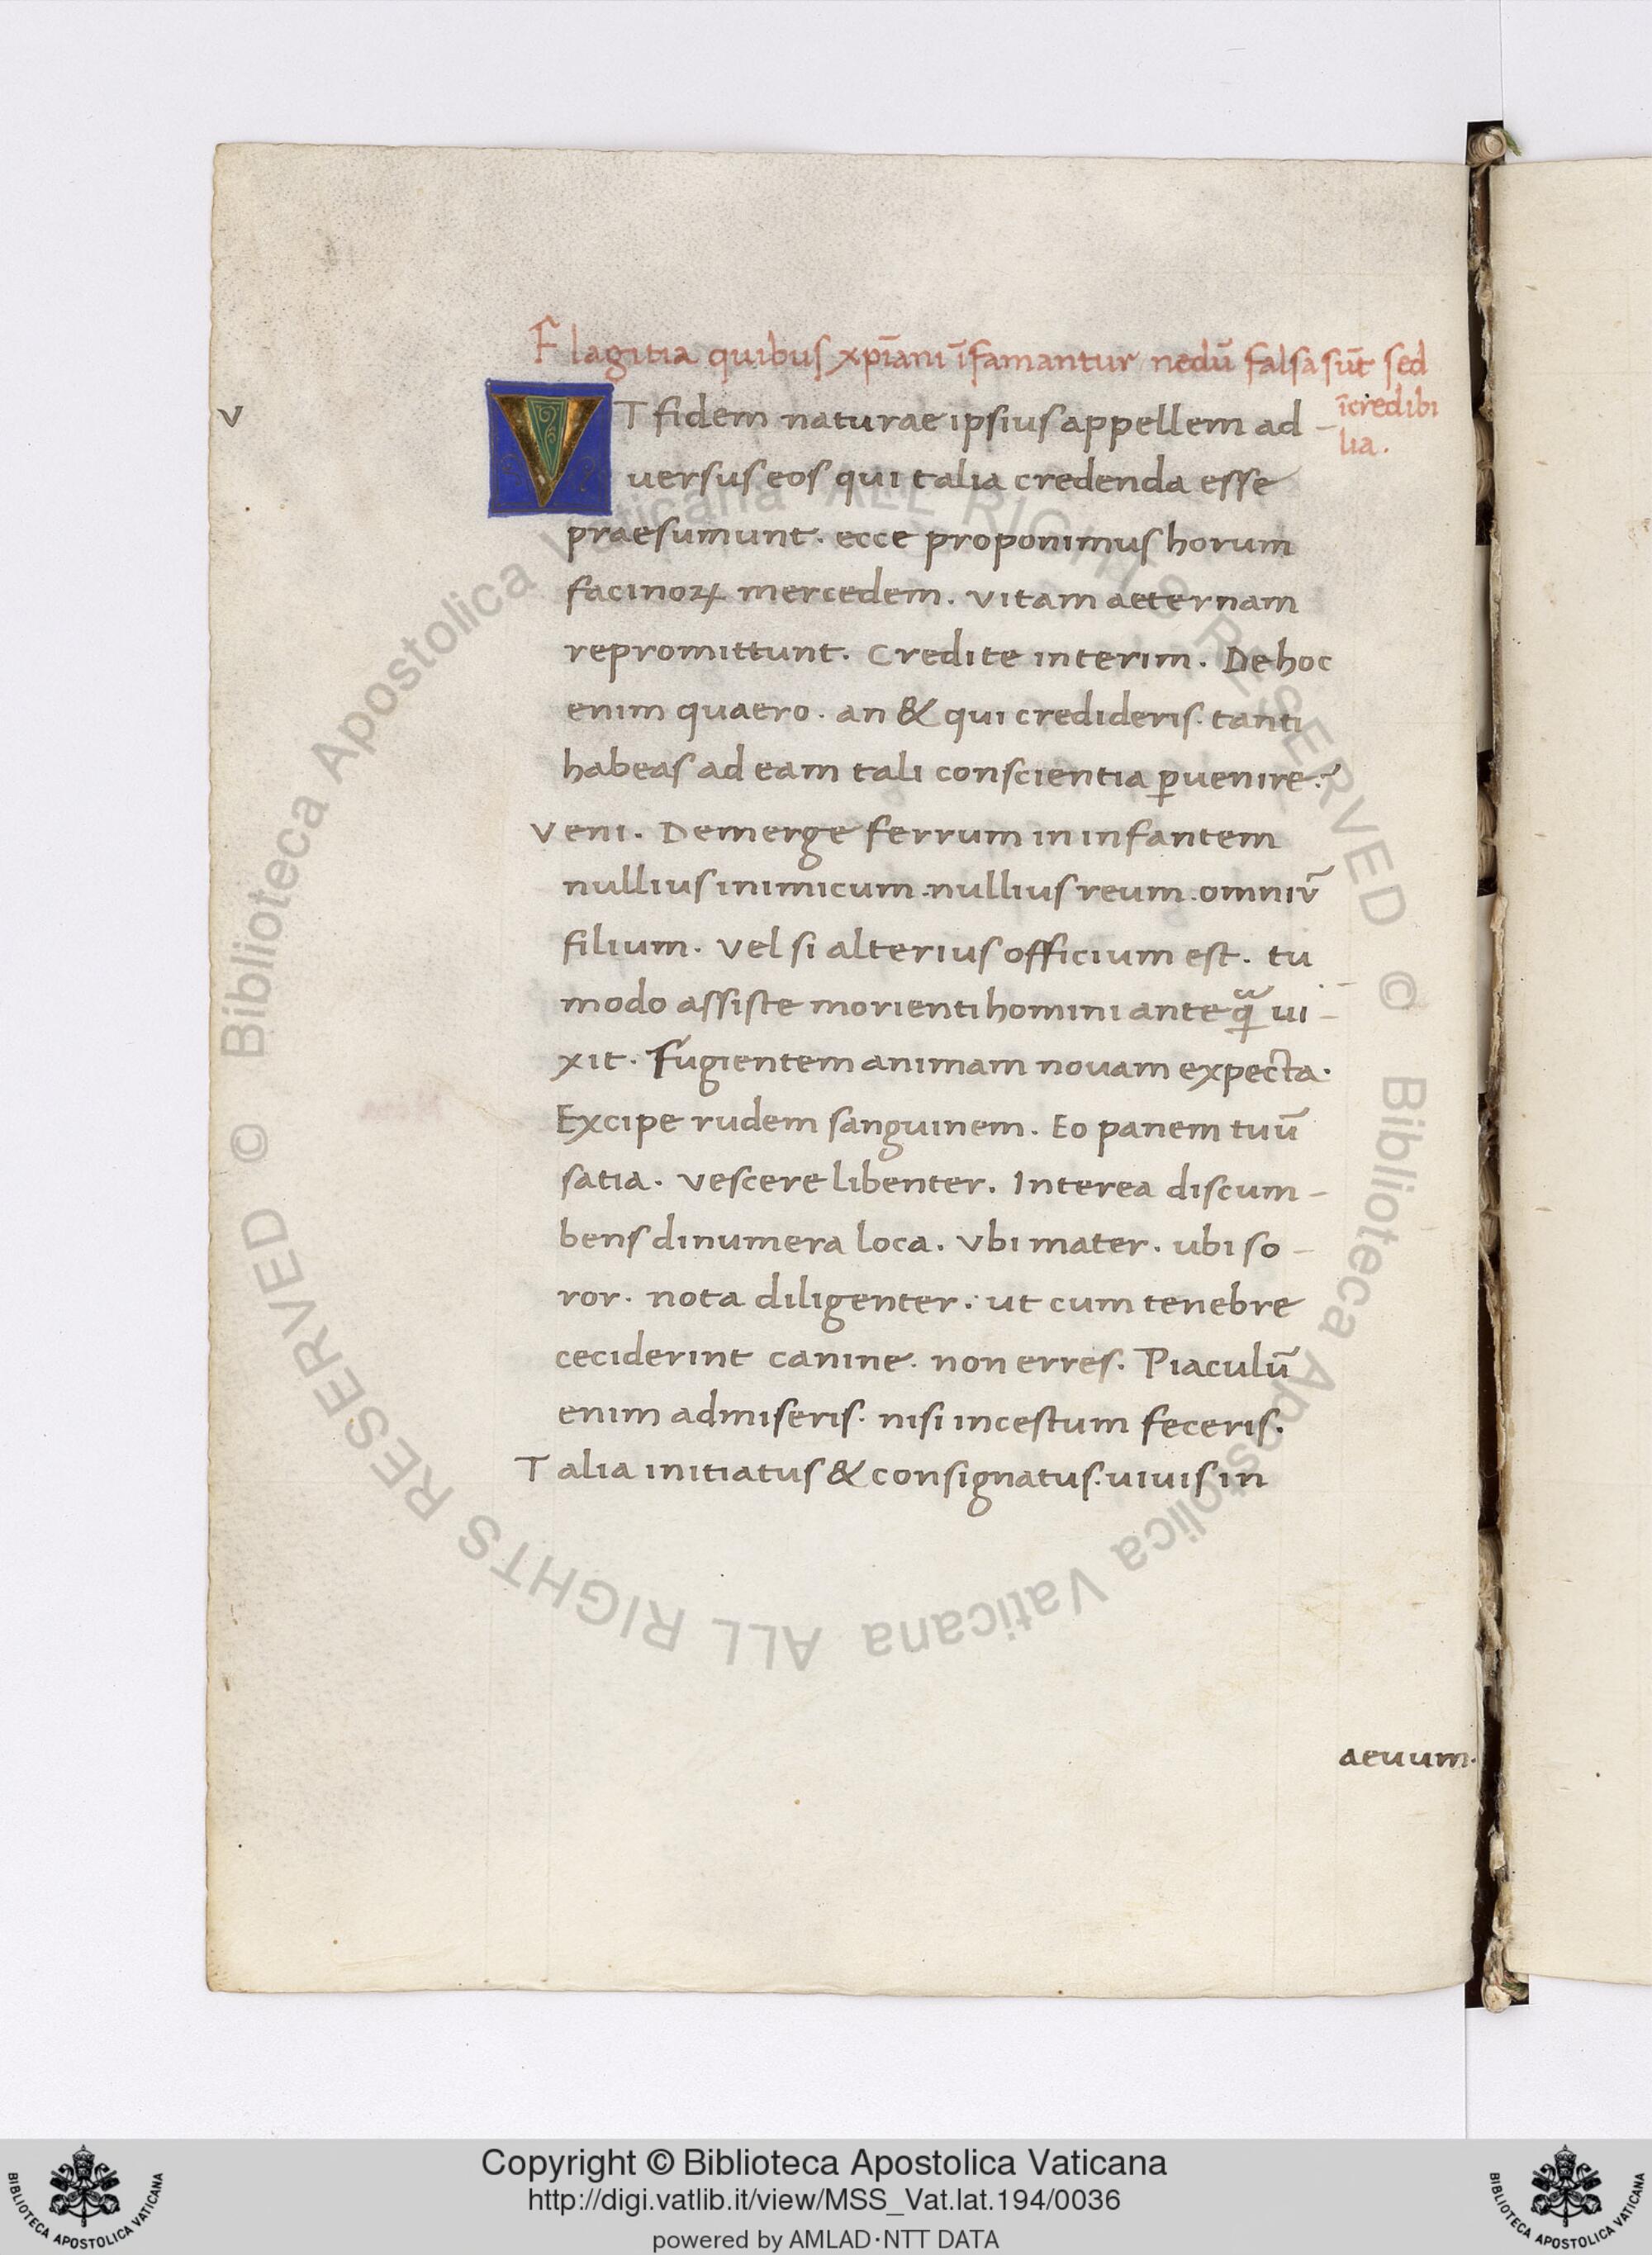 Flagitia quibus xp̄iani īfamantur nedū falsa sūt sed
īcredibi
lia.
v
VT fidem naturae ipsius appellem ad-
uersus eos qui talia credenda esse
praesumunt. ecce proponimus horum
facinoꝝ mercedem. vitam aeternam
repromittunt. Credite interim. De hoc
enim quaero. an & qui credideris. tanti
habeas ad eam tali conscientia ꝑuenire?
Veni. Demerge ferrum in infantem
nullius inimicum. nullius reum. omniū
filium. Vel si alterius officium est. tu
modo assiste morienti homini ante qͣ̄ ui-
xit. Fugientem animam nouam expecta.
Excipe rudem sanguinem. Eo panem tuū
satia. vescere libenter. Interea discum-
bens dinumera loca. Vbi mater. ubi so-
ror. nota diligenter. ut cum tenebre
ceciderint canine. non erres. Piaculū
enim admiseris. nisi incestum feceris.
Talia initiatus & consignatus. uiuis in
aeuum.
© Biblioteca Apostolica Vaticana ALL RIGHTS RESERVED © Biblioteca Apostolica Vaticana ALL RIGHTS RESERVED
Copyright © Biblioteca Apostolica Vaticana
http://digi.vatlib.it/view/MSS_Vat.lat.194/0036
powered by AMLAD·NTT DATA
BIBLIOTECA APOSTOLICA VATICANA
BIBLIOTECA APOSTOLICA VATICANA